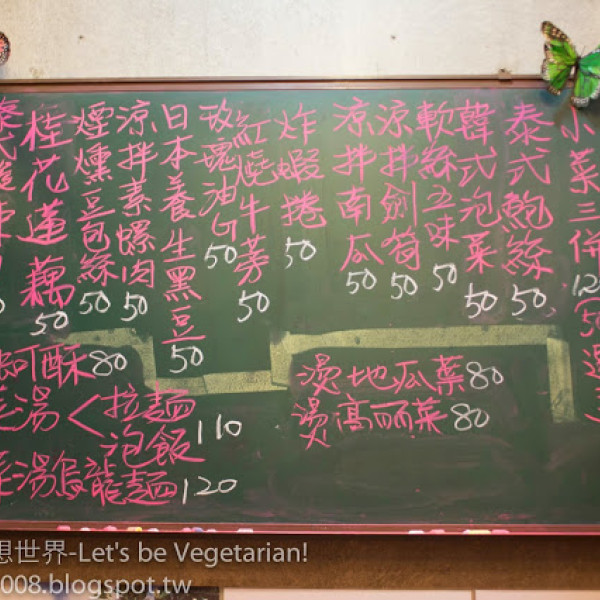 小菜三併 120
泰式鮑絲 50
韓式泡菜 50
軟絲五味 50
涼拌劍筍 50
涼拌南瓜 50
炸蝦捲 50
紅燒牛蒡 50
玫瑰油G 50
日本養生黑豆 50
涼拌素螺肉 50
煙燻豆包絲 50
桂花蓮藕 50
泰式
燙地瓜葉80
燙高丽菜80
酥80
湯<拉麵
泡飯 110
湯烏龍麵120
想世界-Let's be Vegetarian!
008.blogspot.tw